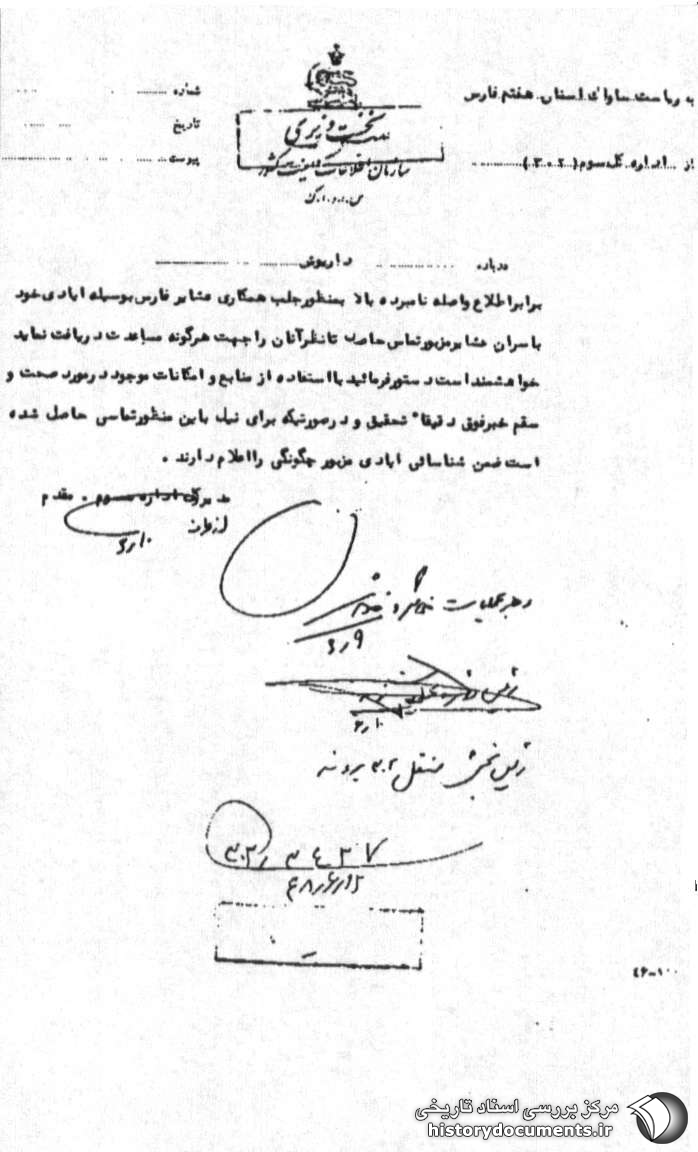 به ریاست ساواک استان هفتم فارس
از اداره کل سوم (۳۰۲)
نخست وزیری
سازمان اطلاعات و امنیت کشور
س.ا.و.ا.ک
شماره
تاریخ
پیوست
درباره داریوش
برابر اطلاع واصله نامبرده بالا بمنظور جلب همکاری عشایر فارس بوسیله ایادی خود
با سران عشایر مزبور تماس حاصل تا نظر آنان را جهت هرگونه مساعدت دریافت نماید
خواهشمند است دستور فرمائید با استفاده از منابع و امکانات موجود در مورد صحت و
سقم خبر فوق دقیقا" تحقیق و در صورتیکه برای نیل باین منظور تماسی حاصل شده
است ضمن شناسائی ایادی مزبور چگونگی را اعلام دارند .
مدیر کل اداره سوم . مقدم
از طرف
۱۰/۶
رهبر عملیات
۹/۶
۱۰/۶
رئیس بخش مستقل ۳۰۲
۳۰۲/۳۴۳۷
۱۲/۶/۴۸
۴۶-۱۰۰
مرکز بررسی اسناد تاریخی
historydocuments.ir